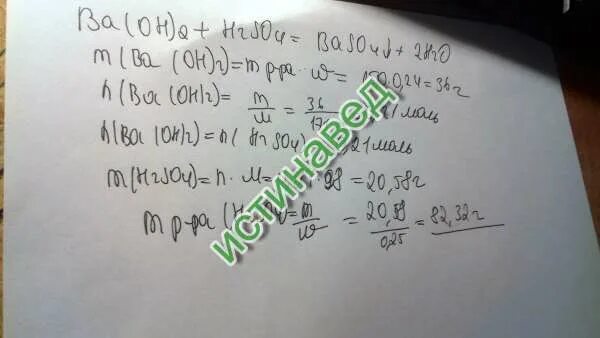 Ba(OH)2 + H2SO4 = BaSO4↓ + 2H2O
m(Ba(OH)2) = m р-ра · w = 150·0,24 = 36 г
n(Ba(OH)2) = m/M = 36/17 моль
n(Ba(OH)2) = n(H2SO4) 21 моль
m(H2SO4) = n · M = · 98 = 20,58 г
m р-ра (H2SO4) = m/w = 20,58/0,25 = 82,32 г
истинавед